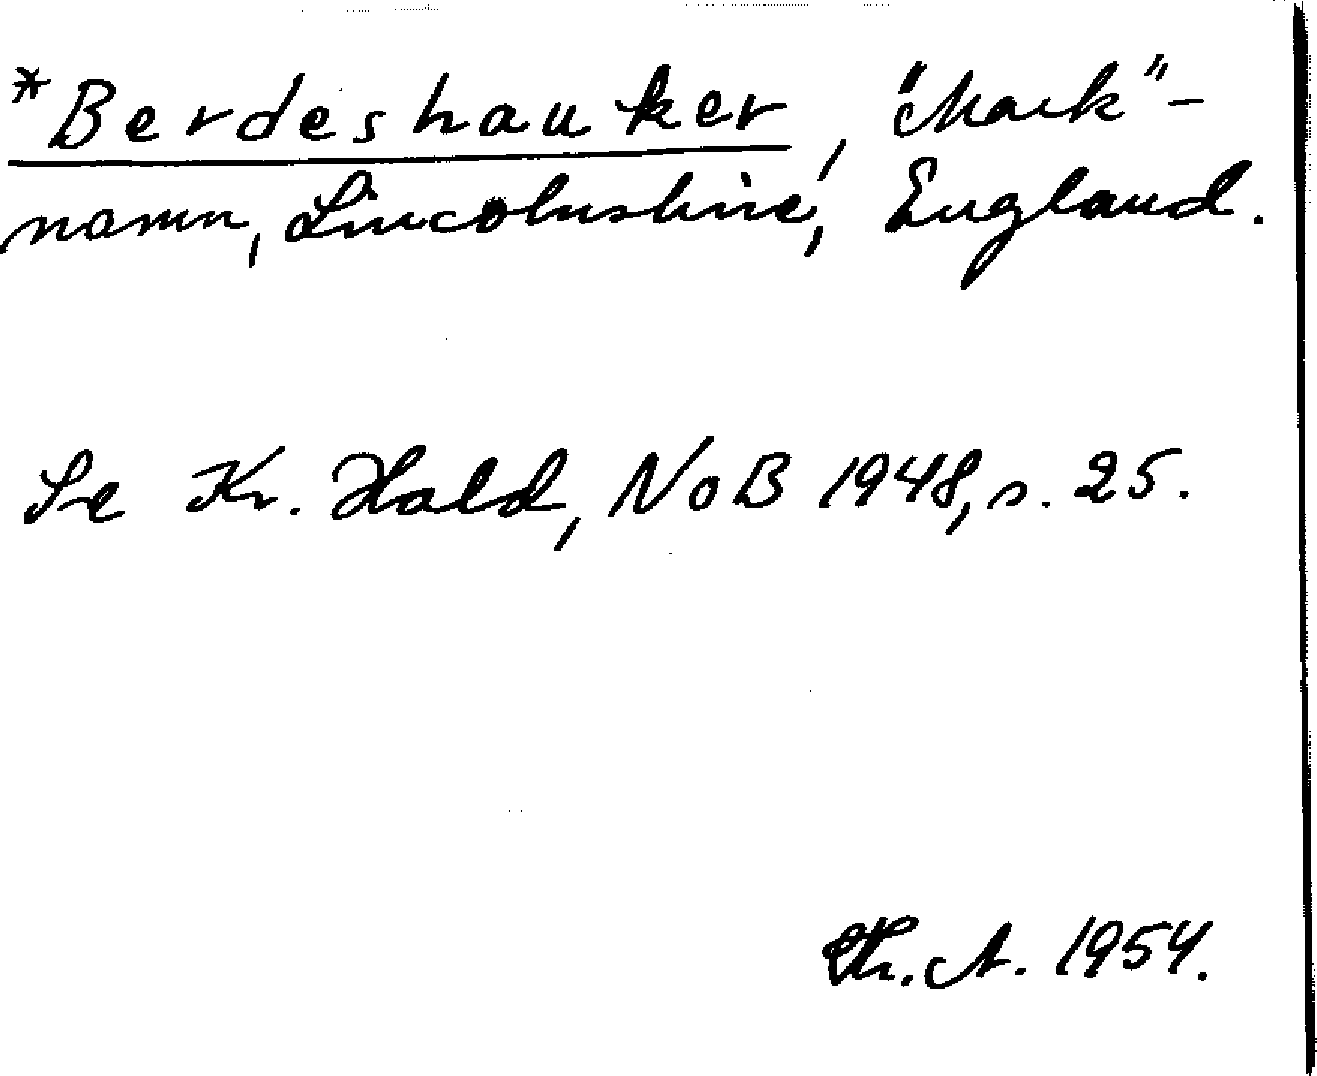 *Berdeshauker, "Mark"-
namn, Lincolnshire, England.
Se Kr. Hald, NoB 1948, s. 25.
Th. A. 1954.